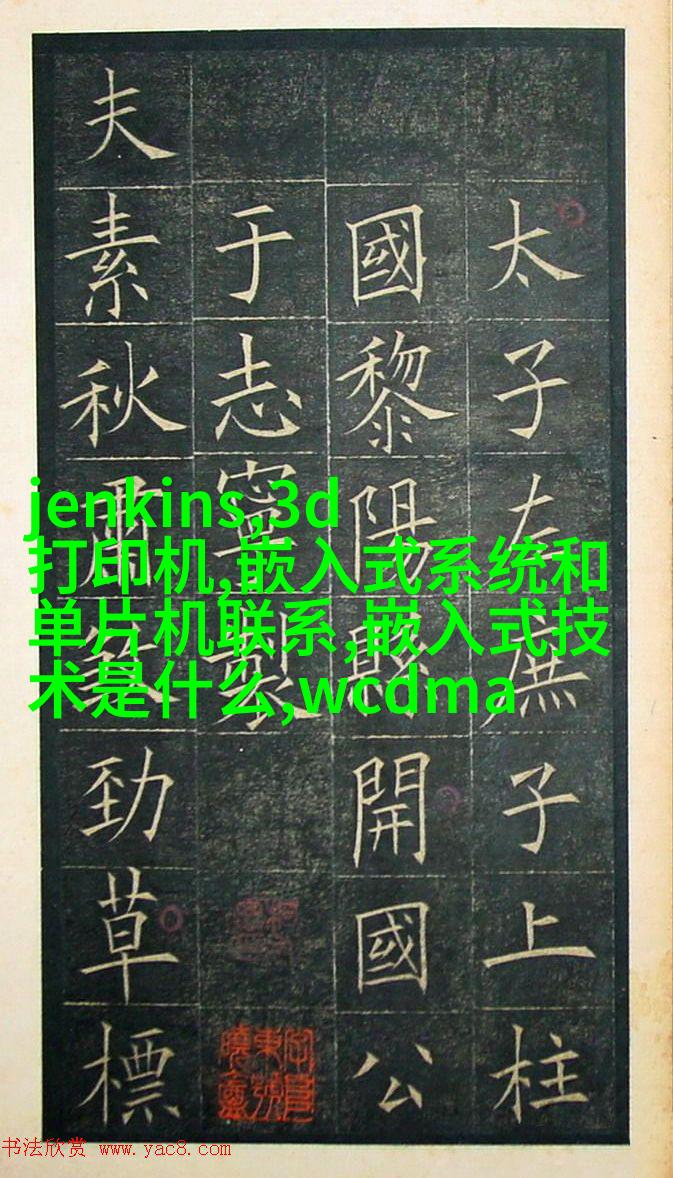 太子左庶子上柱
國黎陽縣開國公
于志寧製
夫素秋肅煞勁草標
jenkins,3d
打印机,嵌入式系统和
单片机联系,嵌入式技
术是什么,wcdma
书法欣赏 www.yac8.com